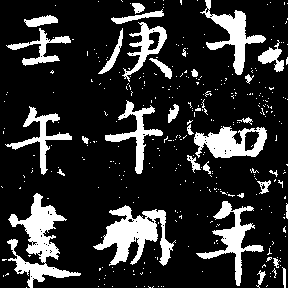 十四年
庚午朔
壬午建